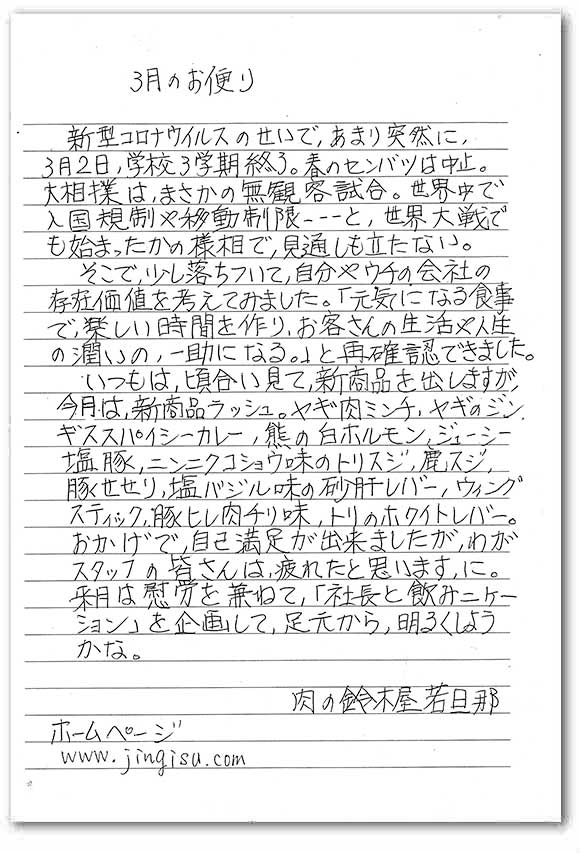 3月のお便り
新型コロナウイルスのせいで,あまり突然に,
3月2日,学校3学期終了。春のセンバツは中止。
大相撲は,まさかの無観客試合。世界中で
入国規制や移動制限---と,世界大戦で
も始まったかの様相で,見通しも立たない。
そこで,少し落ちついて,自分やウチの会社の
存在価値を考えてみました。「元気になる食事
で,楽しい時間を作り,お客さんの生活や人生
の潤いの,一助になる。」と再確認できました。
いつもは,頃合い見て,新商品を出しますが,
今月は,新商品ラッシュ。ヤギ肉ミンチ,ヤギのジン
ギススパイシーカレー,熊の白ホルモン,ジューシー
塩豚,ニンニクコショウ味のトリスジ,鹿スジ,
豚せせり,塩バジル味の砂肝レバー,ウィング
スティック,豚ヒレ肉チリ味,トリのホワイトレバー。
おかげで,自己満足が出来ましたが,わが
スタッフの皆さんは,疲れたと思います,に。
来月は慰労を兼ねて,「社長と飲みニケー
ション」を企画して,足元から,明るくしよう
かな。
肉の鈴木屋若旦那
ホームページ
www.jingisu.com